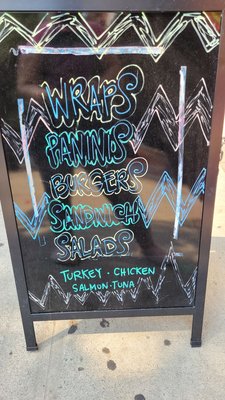 WRAPS
PANINIS
BURGERS
SANDWICH
SALADS
TURKEY · CHICKEN
SALMON · TUNA